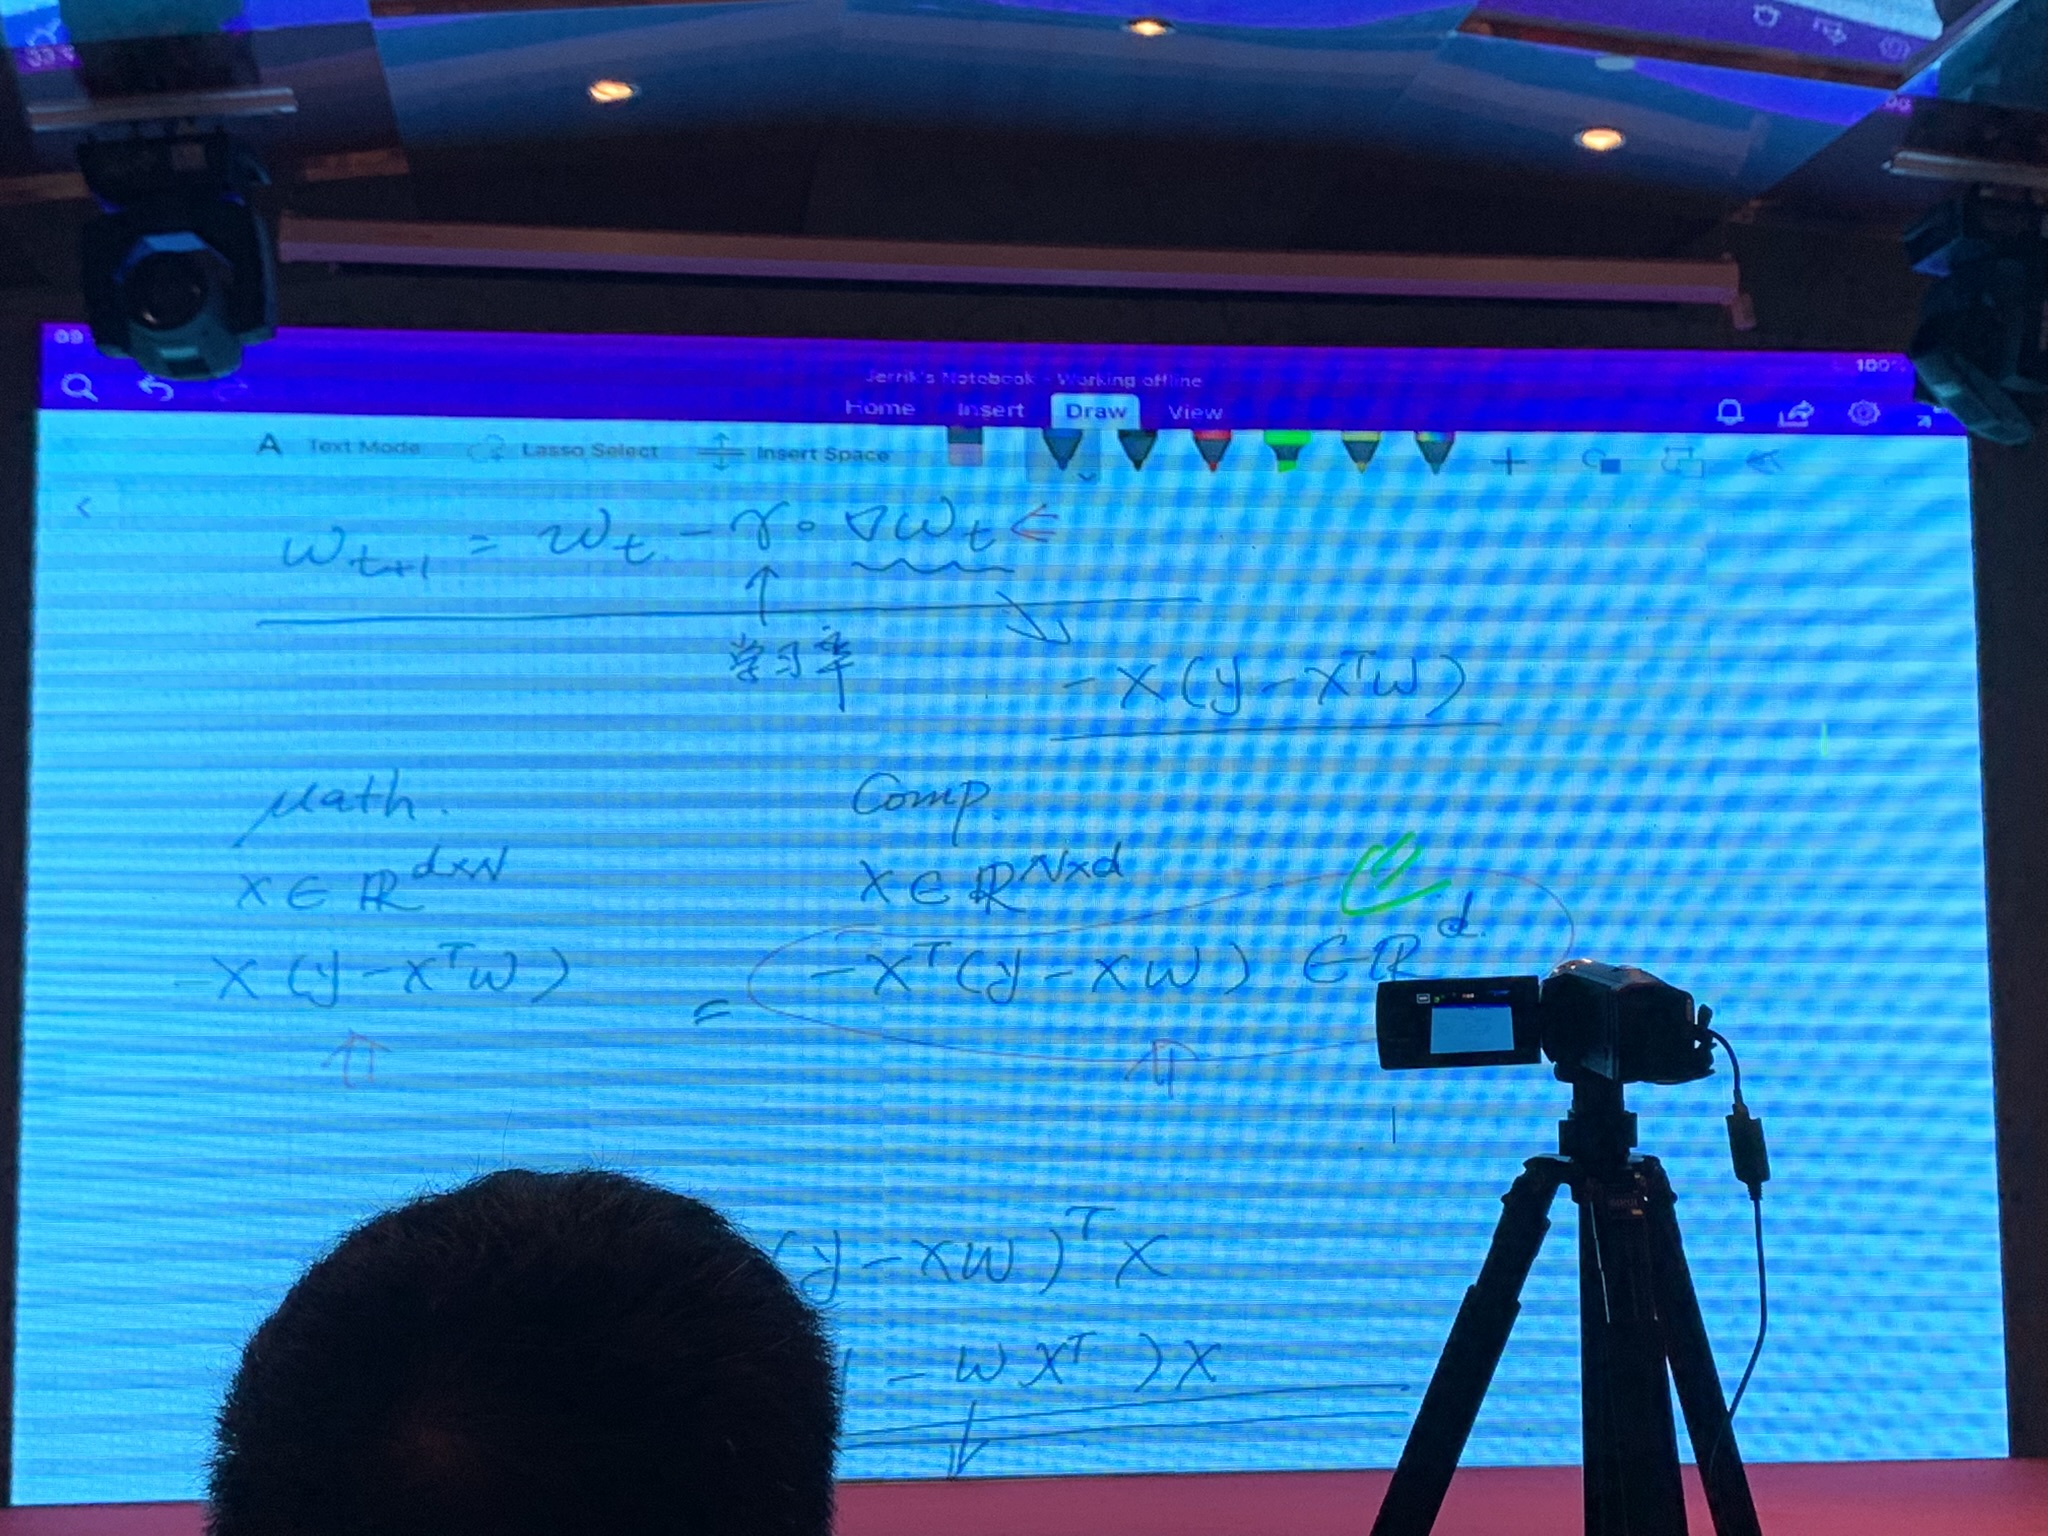 09
100%
Jerrik's Notebook - Working offline
Home Insert Draw View
A Text Mode Lasso Select Insert Space
w_{t+1} = w_t - γ ∘ ∇w_t ⇐
↑
学习率
- X(y - X^T w)
Math. Comp.
X ∈ ℝ^{d×N} X ∈ ℝ^{N×d}
- X(y - X^T w) = -X^T(y - Xw) ∈ ℝ^d.
⇑ ⇑
(y - Xw)^T X
- w X^T) X